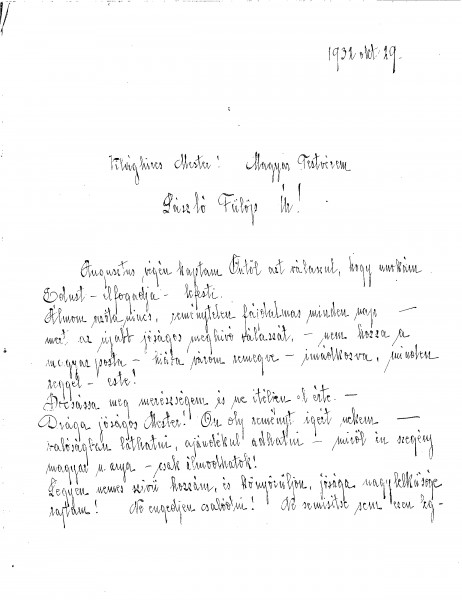 1932 okt 29.
Világhíres Mester! Magyar Testvérem
László Fülöp Úr!
Augusztus végén kaptam Öntől azt válaszul, hogy unokám
Edust – elfogadja – festi.
Álmom azóta nincs, reménytelen fájdalmas minden nap –
mert az újabb jóságos meghívó válaszát, – nem hozza a
magyar posta – hiába várom remegve – imádkozva, minden
reggel – este!
Bocsássa meg merészségem és ne ítéljen el érte. –
Drága jóságos Mester! Ön oly reményt igért nekem –
valóságban láthatni, ajándékul adhatni – miről én szegény
magyar n. anya – csak álmodhatok!
Legyen nemes szívű hozzám, és könyörüljön, jósága nagylelkűsége
rajtam! Ne engedjen csalódni! Ne semisítse sem ezen ég-